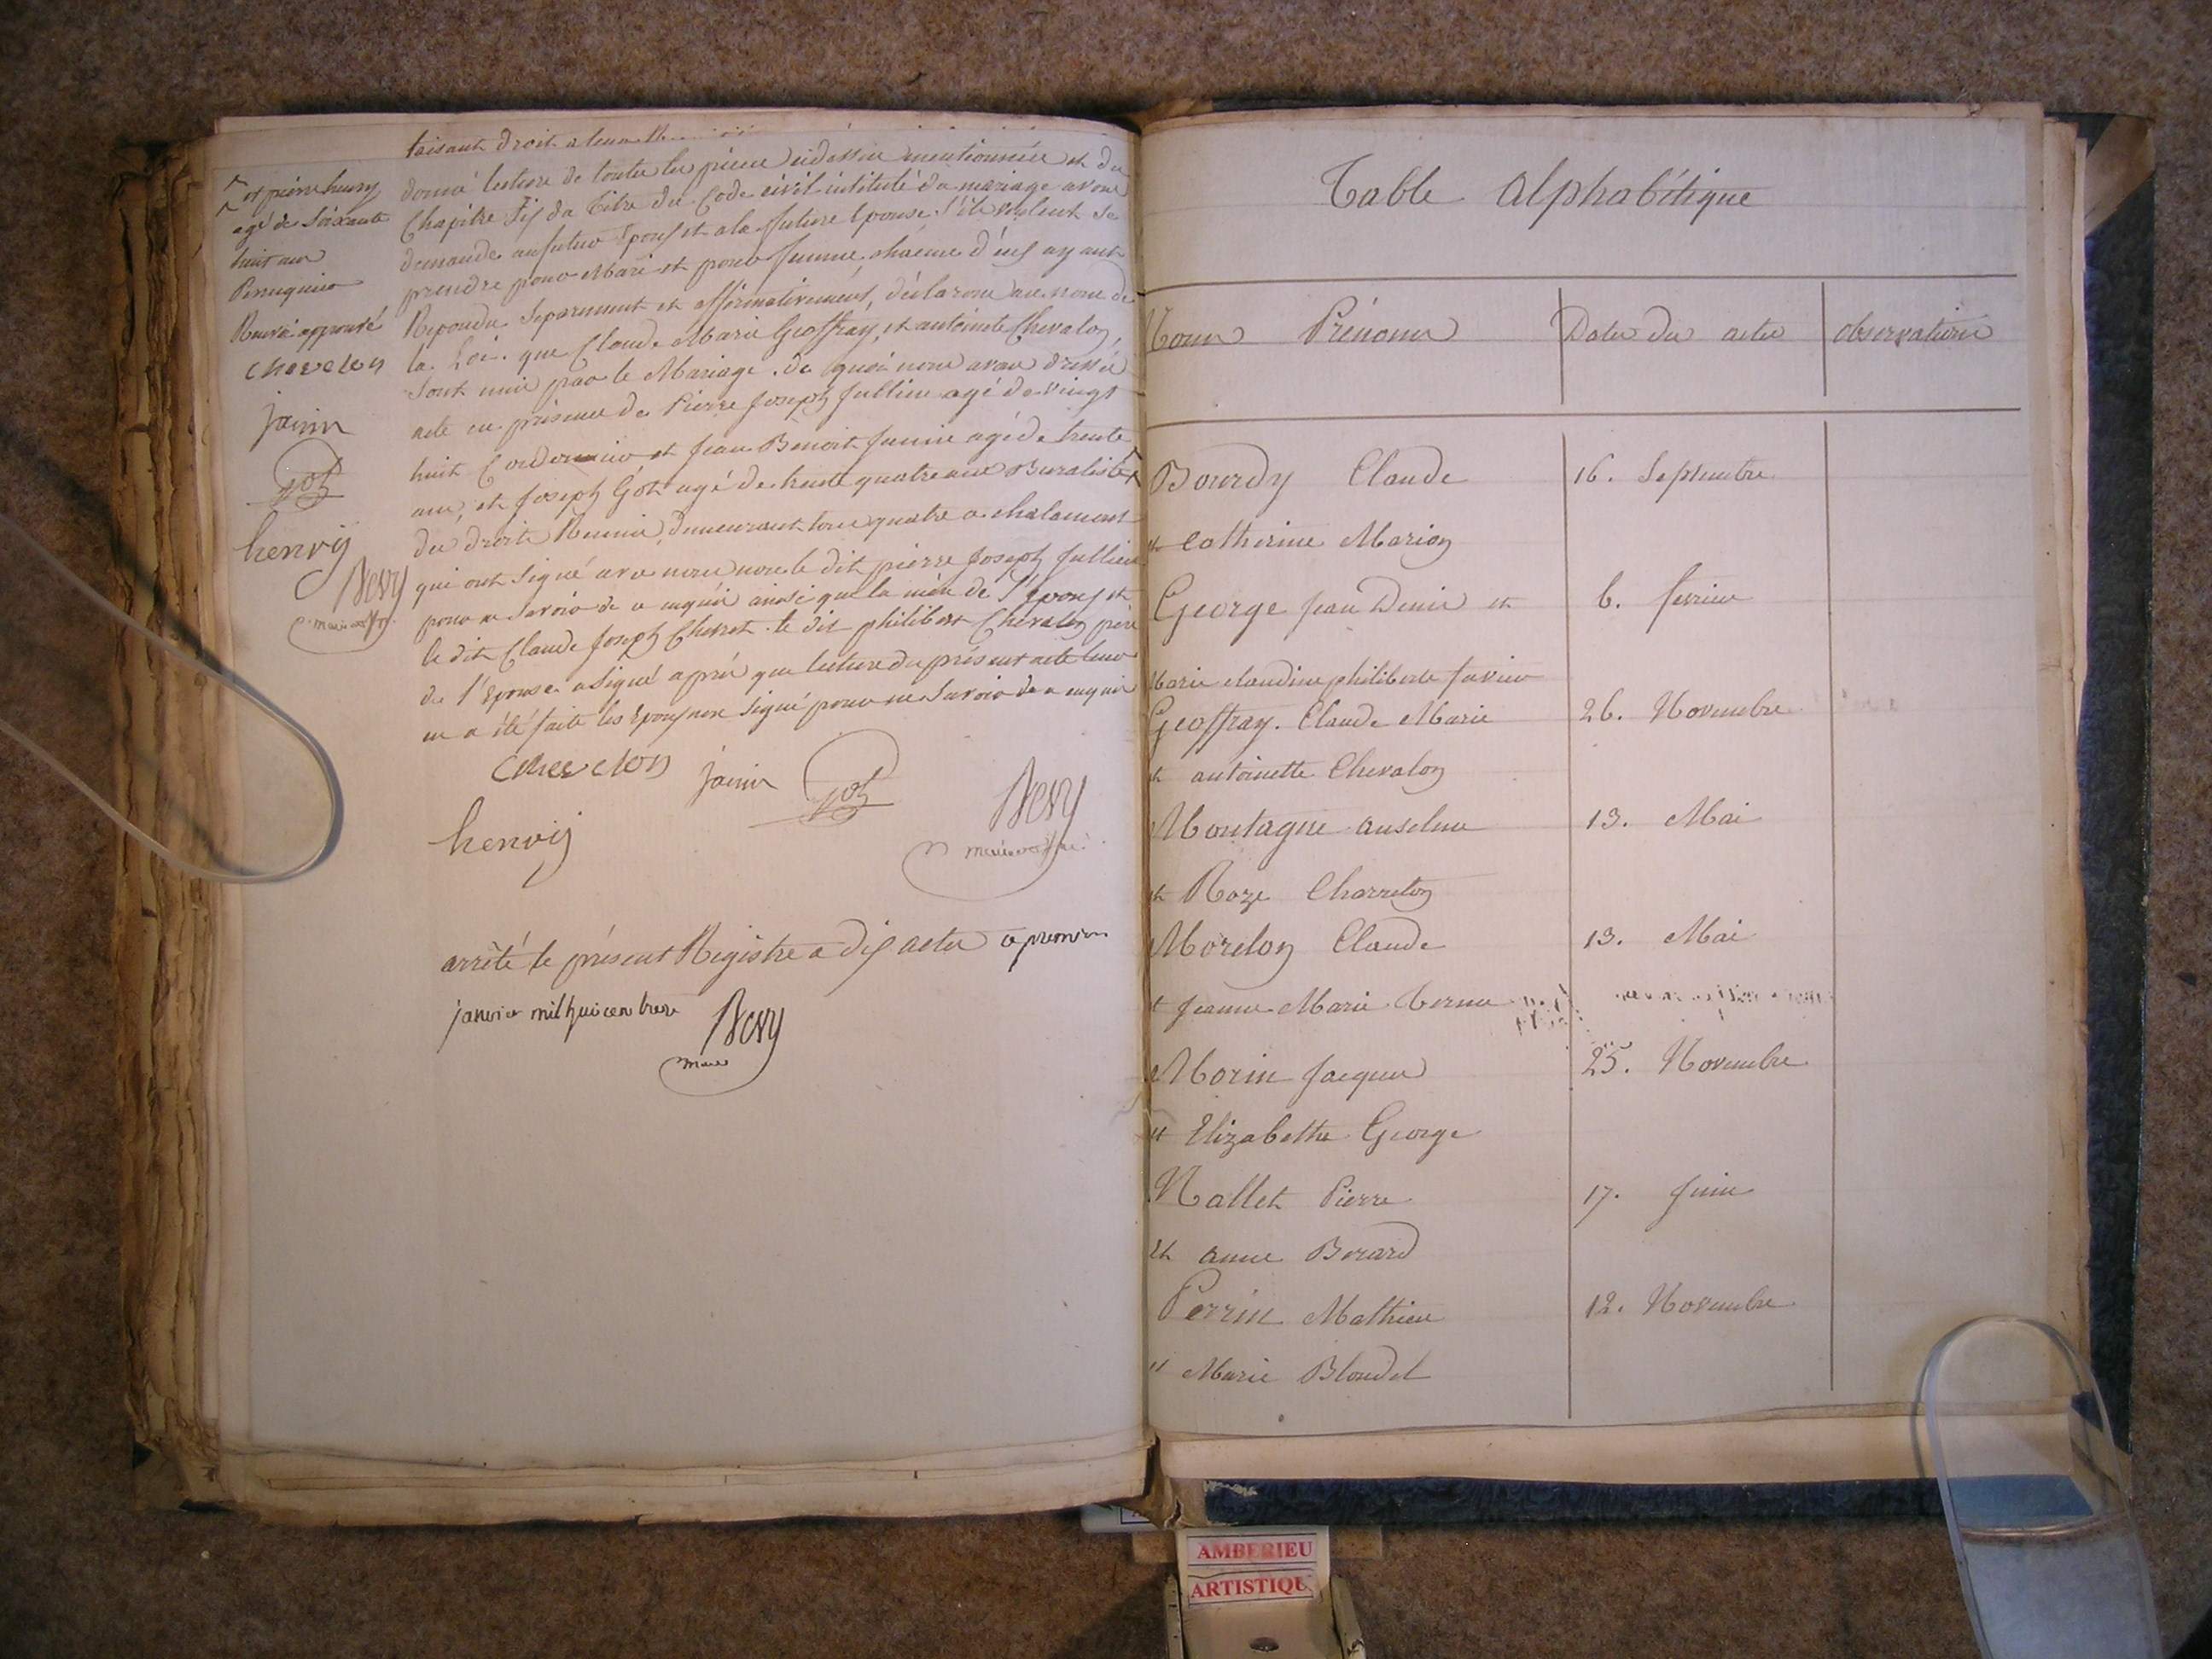 faisant droit a leur
donné lecture de toutes les pièces cidessus mentionnées et du
Chapitre Six du Titre du Code civil intitulé du mariage avons
demandé au futur Epoux et a la future Epouse s'ils veulent se
prendre pour Mari et pour femme, chacun d'eux ayant
Répondu Séparement et affirmativement, déclarons au nom de
la Loi que Claude Marie Geoffray, et antoinette Chevalon,
Sont unis par le Mariage. de quoi nous avons dressé
acte en présence de Pierre Joseph Jullien agé de vingt
huit Cordonnier et Jean Benoit Janin agé de trente
ans, et Joseph Got agé de trente quatre ans Buraliste
des droits Réunis, demeurant tous quatre a chalamont
qui ont signé avec nous non le dit pierre Joseph Jullien
pour ne Savoir de ce enquis ainsi que la mère de l'Epoux et
le dit Claude Joseph le dit philibert Chevalon père
de l'Epouse a signé après que lecture du présent acte leur
en a été faite les Epoux non Signé pour ne Savoir de ce enquis
et pierre henry
agé de Soixante
huit ans
Perruquier
Renvoi approuvé
Chevelon
janin
got
henrij
Nevy
Chevelon janin got Nevy
henrij
arrêté le présent Registre a dix actes ce premier
janvier mil huicen treze Nevy
maire
Table Alphabétique
Noms Prénoms Dates des actes observations
Bourdy Claude 16. Septembre
et Catherine Marion
George Jean Denis et 6. fevrier
Marie claudine philiberte favier
Geoffray. Claude Marie 26. Novembre
et antoinette Chevalon
Montagne anselme 13. Mai
et Roze Charreton
Morelon Claude 13. Mai
et Jeanne Marie
Morin Jacques 25. Novembre
et Elizabethe George
Nallet Pierre 17. Juin
et anne Berard
Perrin Mathieu 12. Novembre
" Marie Blondel
AMBERIEU
ARTISTIQU